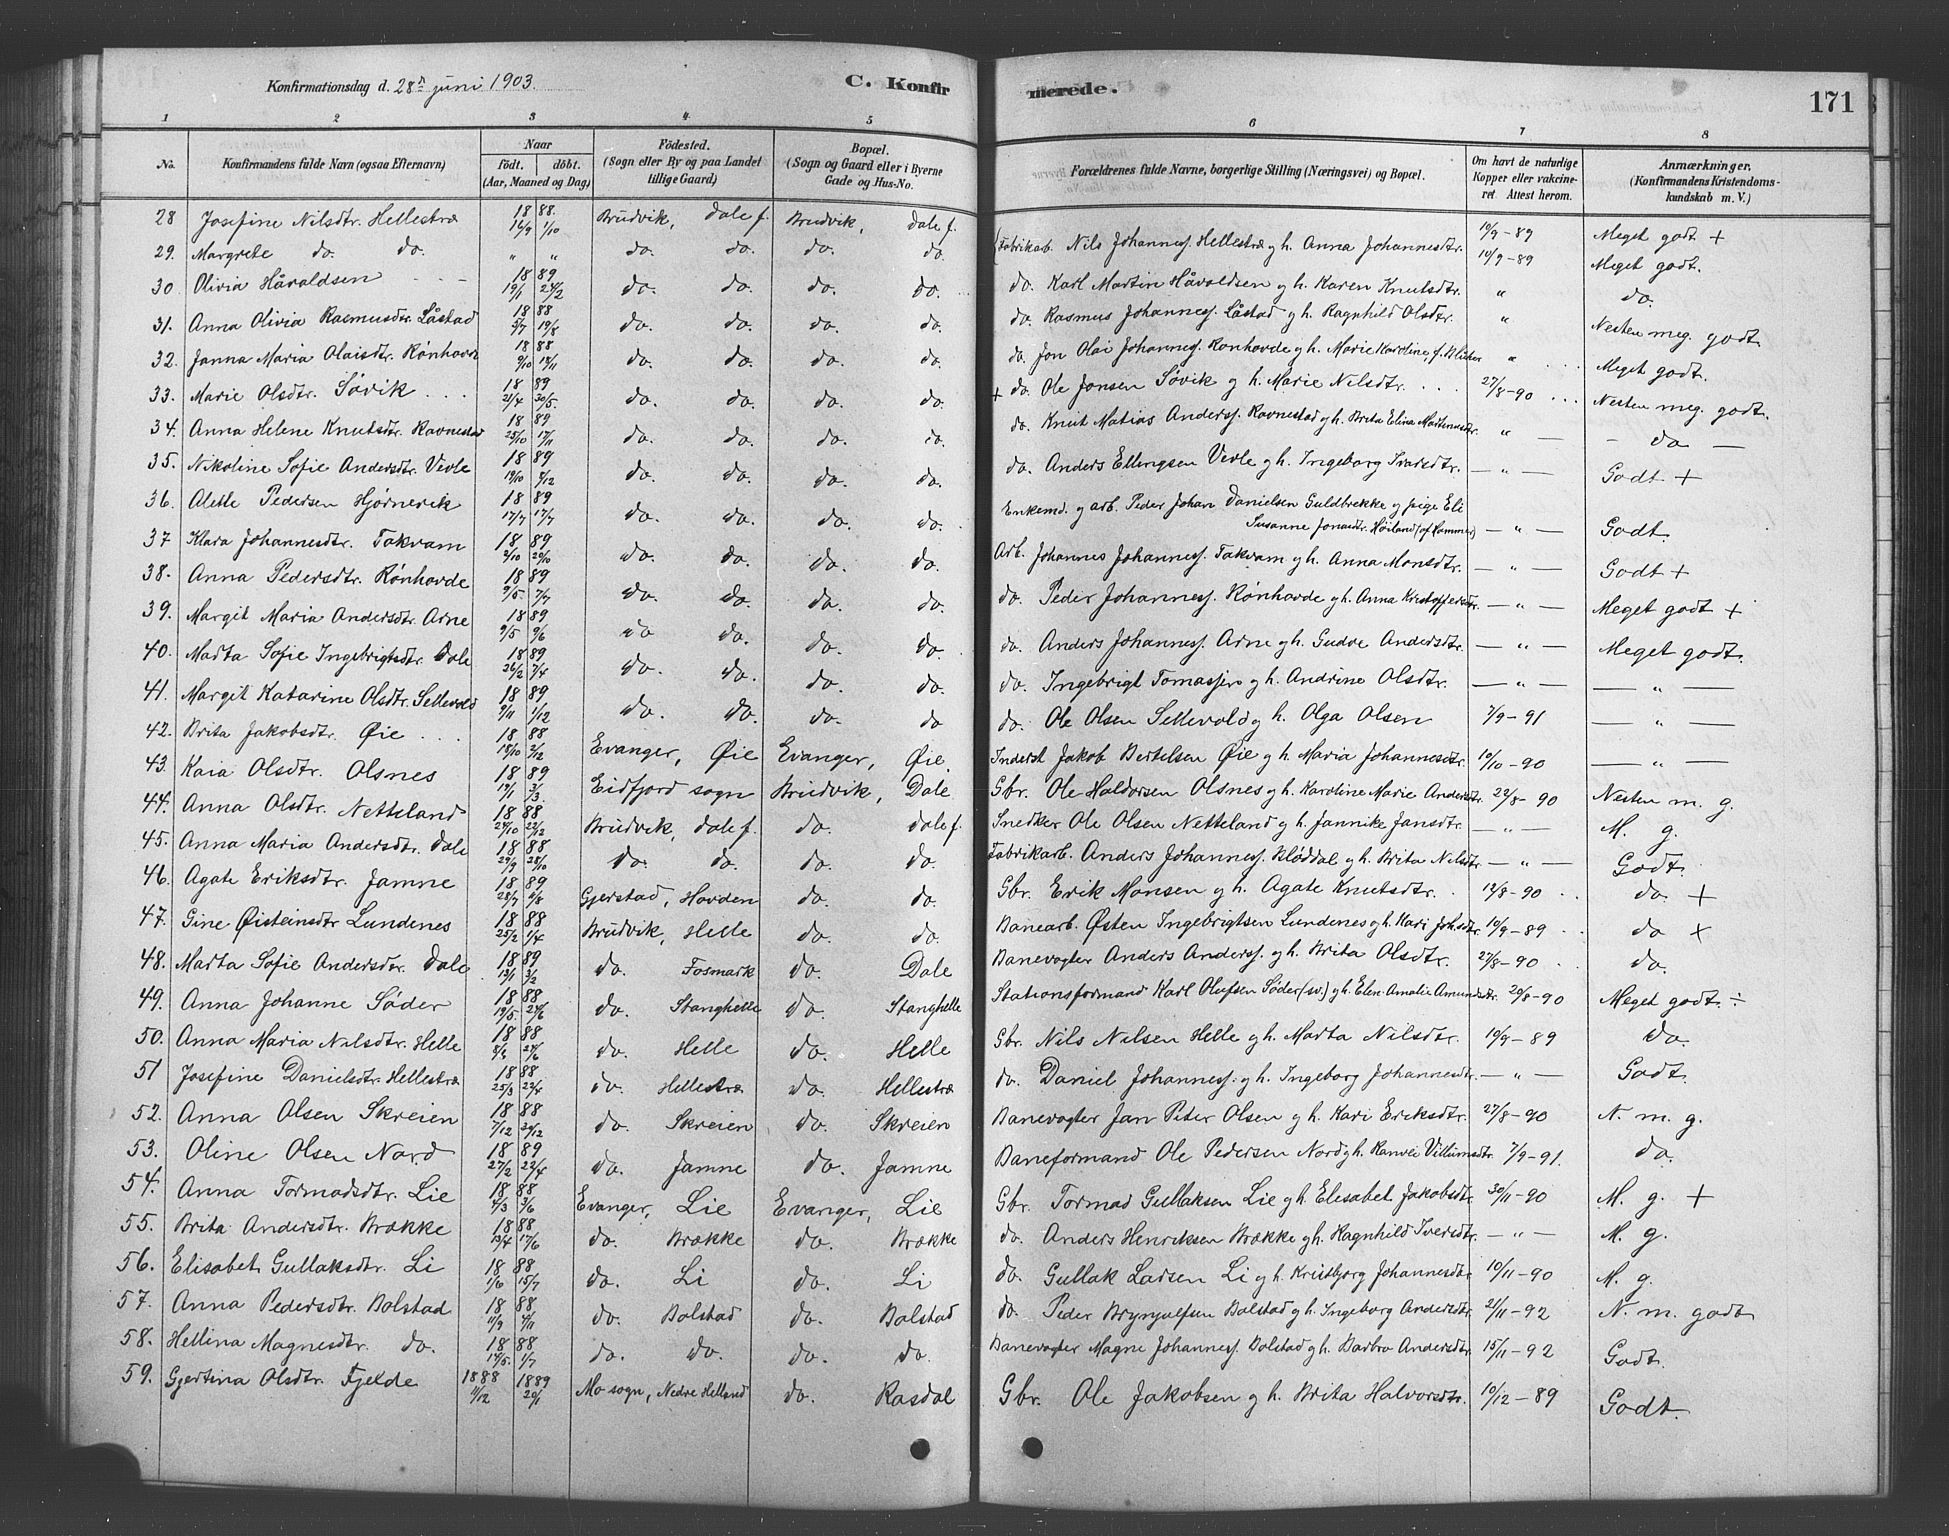 Konfirmationsdag d. 28de juni 1903.
C. Konfirmerede.
171
1 2 3 4 5 6 7 8
No. Konfirmandens fulde Navn (ogsaa Efternavn) Naar födt. döbt. (Aar, Maaned og Dag) Födested. (Sogn eller By og paa Landet tillige Gaard) Bopæl. (Sogn og Gaard eller i Byerne Gade og Hus-No. Forældrenes fulde Navne, borgerlige Stilling (Næringsvei) og Bopæl. Om havt de naturlige Kopper eller vakcineret Attest herom. Anmærkninger. (Konfirmandens Kristendomskundskab m. V.)
28 Josefine Nilsdtr. Hellestræ 1888. 16/9 1/10 Brudvik, Dale f. Brudvik, Dale f. Fabrikarb. Nils Johanness. Hellestræ g h. Anna Johannesdtr. 10/9-89 Meget godt +
29. Margrete do. do. " " do. do. do. do. 10/9-89 Meget godt.
30. Olivia Håvaldsen - - 1889 19/1 24/2 do. do. do. do. do. Karl Martin Håvaldsen g h. Karen Knutsdtr. " do.
31. Anna Olivia Rasmusdtr. Låstad 1888 5/7 19/8 do. do. do. do. do. Rasmus Johanness. Låstad g h. Ragnhild Olsdtr. " Nesten meg. godt
32. Janna Maria Olaisdtr. Rønhovde 1888 9/10 18/11 do. do. do. do. do. Jon Olai Johanness. Rønhovde g h. Marie Karoline, f. Blicher " Meget godt.
33. Marie Olsdtr. Søvik . . . 1889 21/4 30/5. do. do. do. do. + do. Ole Jonsen Søvik g h. Marie Nilsdtr. . . . 27/8-90 . . . Nesten meg. godt.
34. Anna Helene Knutsdtr. Ravnestad 1889 25/10 17/11 do. do. do. do. do. Knut Matias Anderss. Ravnestad g h. Brita Elina Martinusdtr. " — - do —
35. Nikoline Sofie Andersdtr. Vevle 1889 19/10 8/12 do. do. do. do. do. Anders Ellingsen Vevle g h. Ingeborg Ivarsdtr. — " — Godt +
36. Alette Pedersen Hjørnevik 1889 17/7 17/7 do. do. do. do. Enkemd. g arb. Peder Johan Danielsen Guldbrekke g pige Eli Susanne Jonasdtr. Høiland (af Hammer) — " — Godt
37 Klara Johannesdtr. Takvam 1889 2/10 20/10 do. do. do. do. Arb. Johannes Johanness. Takvam g h. Anna Monsdtr. — " — Godt +
38. Anna Pedersdtr. Rønhovde 1889 9/5 7/7 do. do. do. do. do. Peder Johanness. Rønhovde g h. Anna Kristoffersdtr. — " — Meget godt +
39. Margit Maria Andersdtr. Arne 1889 9/5 9/6 do do. do. do. do. Anders Johanness. Arne g h. Gudve Andersdtr. — " — Meget godt.
40. Marta Sofie Ingebrigtsdtr. Dale 1889 26/2 7/4 do. do. do. do. do. Ingebrigt Tomassen g h. Andrine Olsdtr. — " — — " —
41. Margit Katarine Olsdtr. Sellevold 1889 9/11 1/12 do. do. do. do do. Ole Olsen Sellevold g h. Olga Olsen 7/9-91 — " —
42. Brita Jakobsdtr. Øie . . . 1888 18/10 2/12 Evanger, Øie Evanger, Øie Inderst Jakob Bertelsen Øie g h. Maria Johannesdtr. 10/10-90 — " —
43. Kaia Olsdtr. Olsnes 1889 19/1 3/3. Eidfjord sogn Brudvik, Dale Gbr. Ole Haldorsen Olsnes g h. Karoline Marie Andersdtr. 22/8-90 Nesten m. g.
44. Anna Olsdtr. Netteland 1888 24/10 22/12 Brudvik, Dale f. do. Dale f. Snedker Ole Olsen Netteland g h. Jannike Jansdtr. — " — M. g.
45. Anna Maria Andersdtr. Dale 1888 29/9 28/10 do. do. do. do. Fabrikarb. Anders Johanness. Kløddal g h. Brita Nilsdtr. — " — Godt.
46. Agate Eriksdtr. Jamne 1889 28/7 8/8 Gjerstad, Hovden do. do. Gbr. Erik Monsen g h. Agate Knutsdtr. . 12/8-90 . . do. +
47. Gine Øisteinsdtr Lundenes 1888 25/2 1/4 Brudvik, Helle do. do. Banearb. Østen Ingebrigtsen Lundenes g h. Kari Joh.sdtr. 10/9-89 . . do +
48. Marta Sofie Andersdtr. Dale 1889 13/1 3/2 do. Fosmark do. Dale Banevogter Anders Anderss. g h. Brita Olsdtr. 27/8-90 . do.
49. Anna Johanne Søder 1888 19/5. 24/6 do. Stanghelle do. Stanghelle Stationsformand Karl Olufsen Søder (sv.) g h. Elen Amalie Amundsdtr. 20/8-90 Meget godt. ÷
50. Anna Maria Nilsdtr. Helle 1888 24/6 do. Helle do. Helle Gbr. Nils Nilsen Helle g h. Marta Nilsdtr. 10/9-89 do.
51 Josefine Danielsdtr. Hellestræ 1888 25/3 22/4 do. Hellestræ do. Hellestræ do. Daniel Johanness. g h. Ingeborg Johannesdtr. — " — Godt.
52. Anna Olsen Skreien 1888 7/12 30/12 do. Skreien do. Skreien Banevogter Jan Peter Olsen g h. Kari Eriksdtr. 27/8-90 N. m. g.
53. Oline Olsen Nord 1889 27/2 22/4 do. Jamne do. Jamne Baneformand Ole Pedersen Nord g h. Ranvei Villumsdtr. 7/9-91. do.
54. Anna Tormodsdtr. Lie 1888 4/3 3/6 Evanger, Lie Evanger, Lie Gbr. Tormod Gullaksen Lie g h. Elisabet Jakobsdtr 30/11-90 M. g. +
55. Brita Andersdtr. Brække 1888 13/4 17/6 do. Brække do. Brække do. Anders Henriksen Brække g h. Ragnhild Iversdtr. — " — M. g.
56. Elisabet Gullaksdtr. Li 1888 1/6 15/7 do. Li do. Li do. Gullak Larsen Li g h. Kristbjorg Johannesdtr 10/11-90 M. g.
57. Anna Pedersdtr. Bolstad 1888 11/9 4/11 do. Bolstad do. Bolstad do. Peder Brynjulfsen Bolstad g h. Ingeborg Andersdtr. 21/11-92 N. m. godt
58. Hellina Magnesdtr. do. 1888 14/5. 1/7 do. do. do. do. Banevogter Magne Johanness. Bolstad g h. Barbro Andersdtr. 15/11-92 Godt.
59. Gjertina Olsdtr. Fjelde 1888 11/12 1889 20/1 Mo sogn, Nedre Helland do. Rasdal Gbr. Ole Jakobsen g h. Brita Halvorsdtr. 10/12-89 Godt.